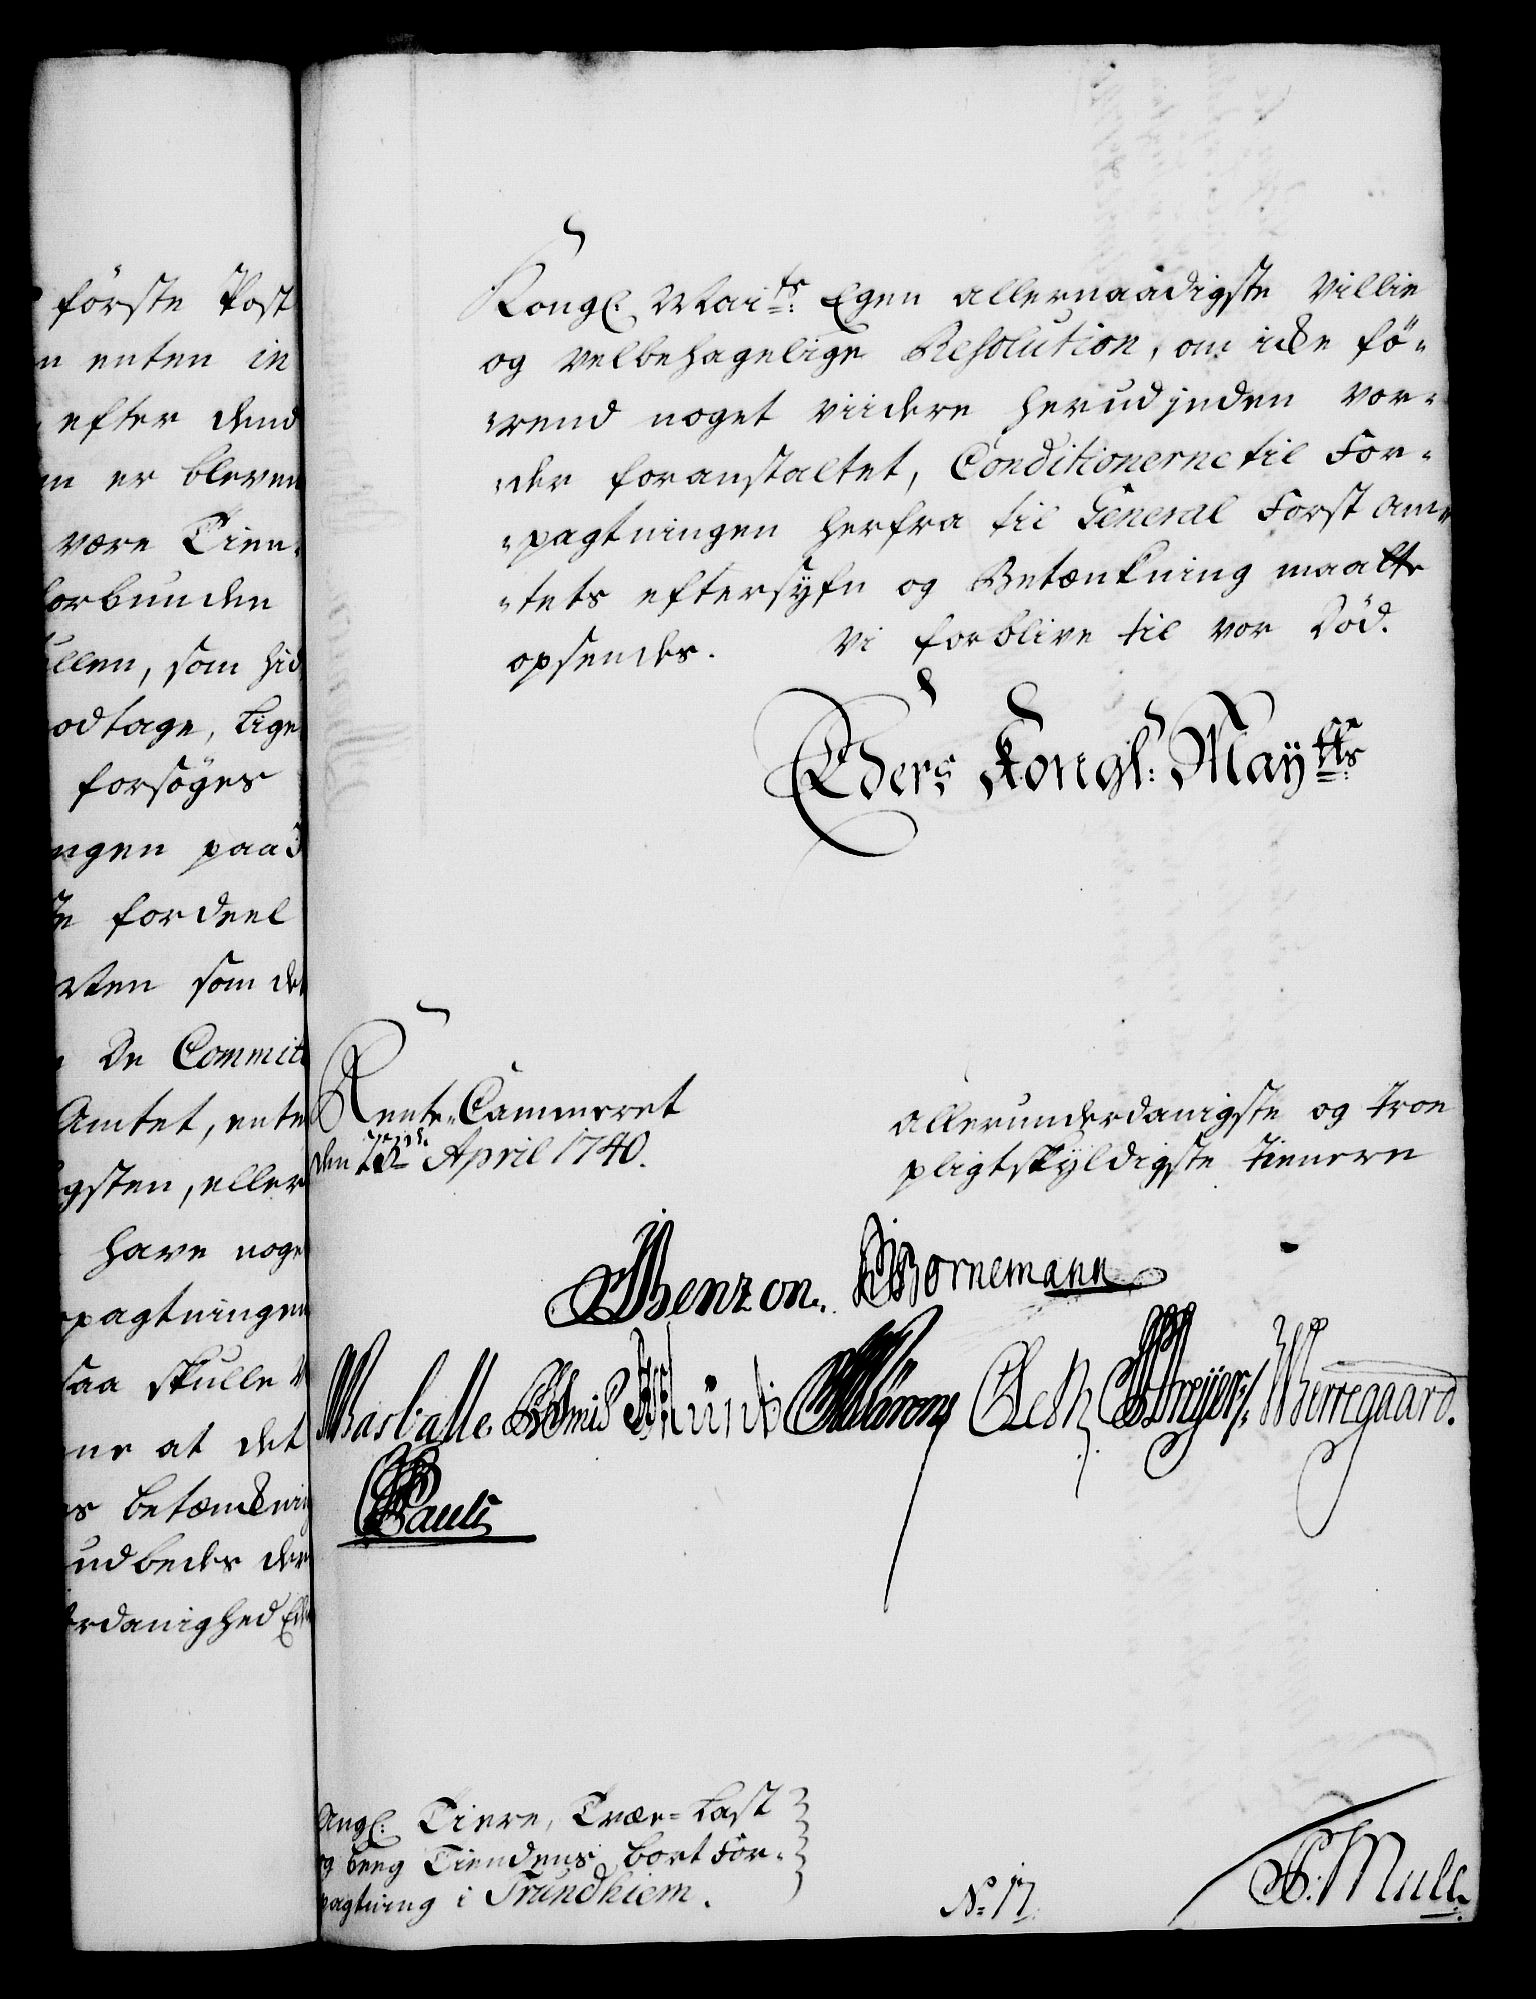 förste Post
enten in
efter dend
er bleven
være Tien¸
forbunden
som hid
odtage, lige
forsøges
ngen paa
fordeel
som det
De Committ
Amtet, ente
gsten, eller
have noge
pagtningen
saa skulle
ne at det
betænckning
udbedes der
erdanighed Ed
Kongl: Maits: Egen allernaadigste Villie
og velbehagelige Resolution, om icke fö-
-rend noget viidere herudjnden vor-
-der foranstaltet, Conditionerne til For-
-pagtningen herfra til General Forst Am-
-tets eftersyfn og Betænkning maatte
opsendes. Vi forblive til vor Död.
Eders Kongl: Mayttts:
Rente-Cammeret
den April 1740.
allerunderdanigste og Troe
pligtskyldigste tienere
Benzon. Bornemann
Basballe. Munch Dreyer Werregaard.
Pauli
Angl: Tiere, Træe-Last
og beeg Tiendens bort For-
pagtning i Trundhiem.
No: 17.
Müller